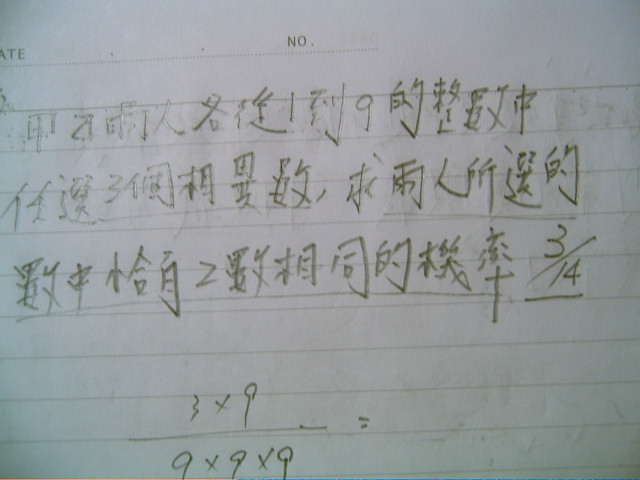 ATE
NO.
甲乙兩人各從1到9的整數中
任選3個相異數,求兩人所選的
數中恰有2數相同的機率 3/14
3×9
9×9×9 =